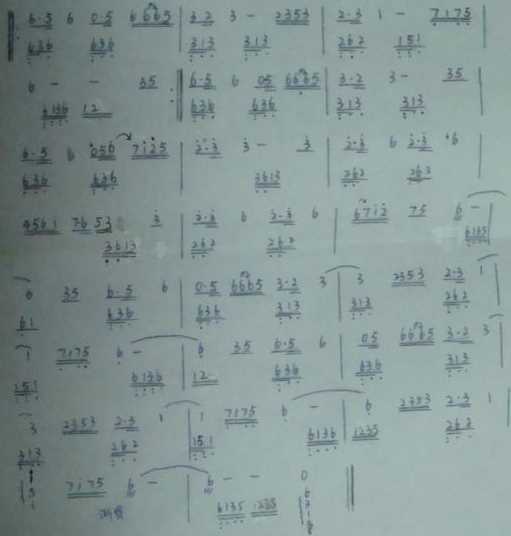 ‖ 6·5 6 0·5 6665 | 3·2 3 - 2353 | 2·3 1 - 7175 |
636 636 313 313 262 151
6 - - 35 ‖ 6·5 6 05 6665 | 3·2 3 - 35 |
6136 12 636 636 313 313
6·5 6 056 7125 | 2·3 3 - 3 | 2·3 6 2·3 6 |
636 636 3613 262 262
4561 7653 3 | 2·3 6 2·3 6 | 6712 75 6 - |
3613 262 262 6135
6 35 6·5 6 | 0·5 6665 3·2 3 | 3 2353 2·3 1 |
61 636 636 313 313 262
1 7175 6 - | 6 35 6·5 6 | 05 6665 3·2 3 |
151 6136 12 636 636 313
3 2353 2·3 1 | 1 7175 6 - | 6 2353 2·3 1 |
313 262 151 6136 1235 262
7175 6 - | 6 - - 0 ‖
6135 1235